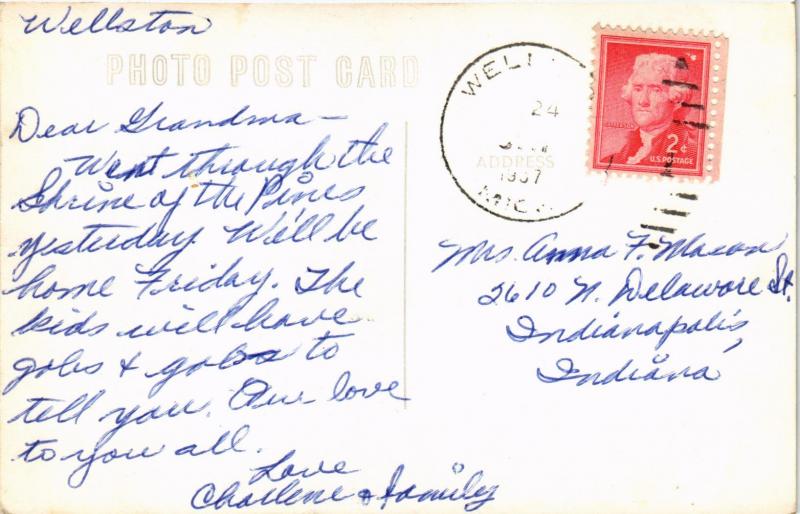 Wellston
PHOTO POST CARD
Dear Grandma—
Went through the
Shrine of the Pines
yesterday. We'll be
home Friday. The
kids will have
gobs & gobs to
tell you. Our love
to you all.
Love
Charlene & family
WELL
24
ADDRESS
1957
MICH
JEFFERSON
2¢
U.S. POSTAGE
Mrs. Anna F. Mason
2610 N. Delaware St.
Indianapolis,
Indiana